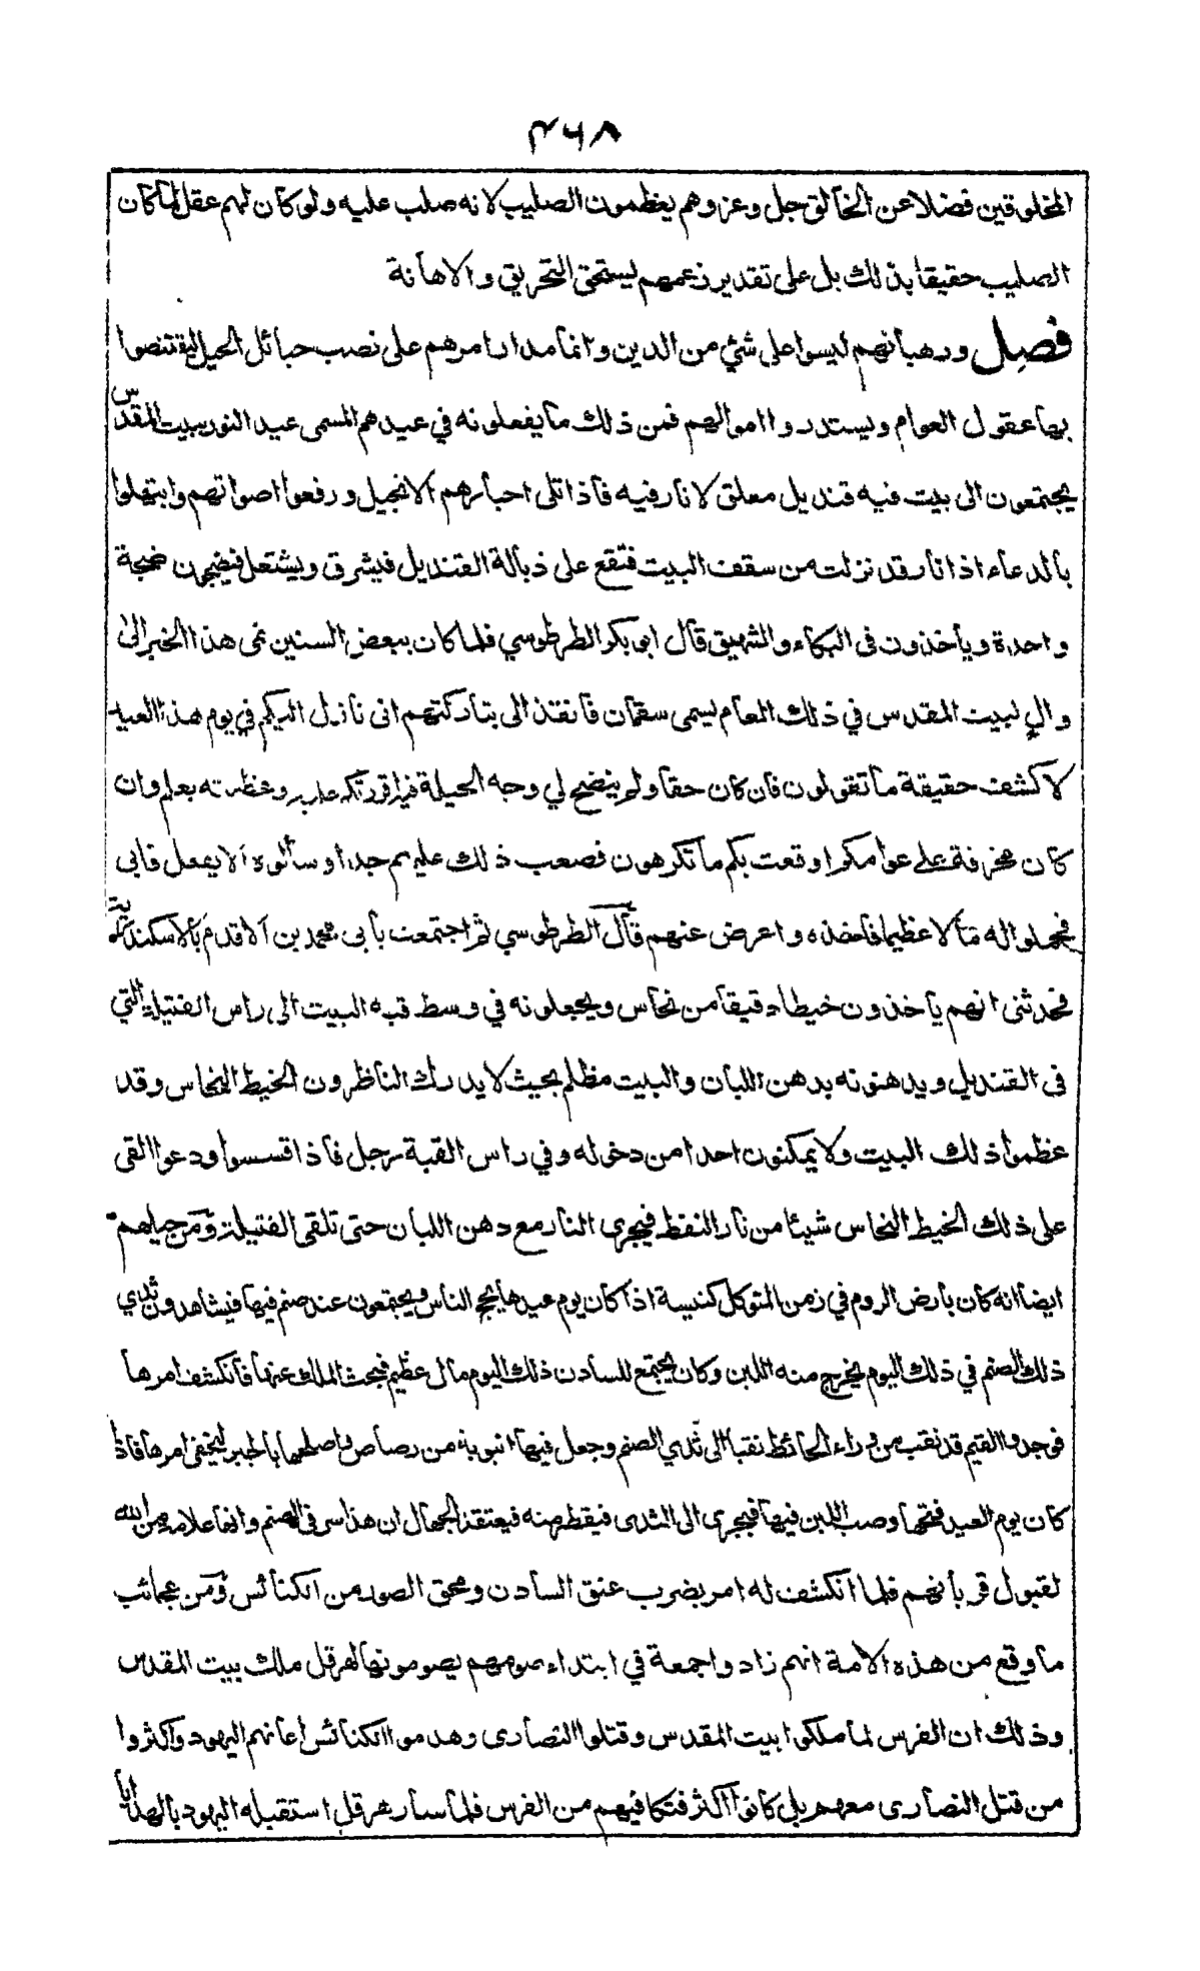 ٤٦٨
المخلوقين فضلا عن الخالق جل وعز وهم يعظمون الصليب لانه صلب عليه ولو كان لهم عقل لما كان
الصليب حقيقا بذلك بل على تقدير زعمهم ليستحق التحريق والاهانة
فصل ورهبانهم ليسوا على شئ من الدين وانما مدار امرهم على نصب حبائل الحيل ليقتنصوا
بها عقول العوام ويستدروا اموالهم فمن ذلك ما يفعلونه في عيدهم المسمى عيد النور ببيت المقدس
يجتمعون الى بيت فيه قنديل معلق لا نار فيه فاذا تلى احبارهم الانجيل ورفعوا اصواتهم وابتهلوا
بالدعاء اذا نار قد نزلت من سقف البيت فتقع على ذبالة القنديل فيشرق ويشتعل فيضجون ضجة
واحدة وياخذون فى البكاء والشهيق قال ابو بكر الطرطوسي فلما كان ببعض السنين نمى هذا الخبر الى
والٍ لبيت المقدس في ذلك العام يسمى سقمان فانفذ الى بتاركتهم انى نازل اليكم في يوم هذا العيد
لا كشف حقيقة ما تقولون فان كان حقا ولم يتضح لي وجه الحيلة فيه اقررتكم عليه وعظمته بعلم وان
كان مخرفة على عوامكم اوقعت بكم ما تكرهون فصعب ذلك عليهم جدا وسألوه الا يفعل فابى
فحملوا له مالا عظيما فاخذه واعرض عنهم قال الطرطوسي ثم اجتمعت بابى محمد بن الاقدم بالاسكندرية
فحدثنى انهم ياخذون خيطا دقيقا من نحاس ويجعلونه في وسط قبه البيت الى راس الفتيلة التي
فى القنديل ويدهنونه بدهن اللبان والبيت مظلم بحيث لا يدرك الناظرون الخيط النحاس وقد
عظموا ذلك البيت ولا يمكنون احدا من دخوله وفي راس القبة رجل فاذا قسسوا ودعوا القى
على ذلك الخيط النحاس شيئا من نار النفط فيجرى النار مع دهن اللبان حتى تلقى الفتيلة ومن حيلهم
ايضا انه كان بارض الروم في زمن المتوكل كنيسة اذا كان يوم عيدها يحج الناس ويجتمعون عند صنم فيها فيشاهدون ثدي
ذلك الصنم في ذلك اليوم يخرج منه اللبن وكان يجتمع للسادن ذلك اليوم مال عظيم فبحث الملك عنها فانكشف امرها
فوجدوا القيم قد نقب من وراء الحائط نقبا الى ثدي الصنم وجعل فيها انبوبة من رصاص واصلحها بالجبر ليخفى امرها فاذا
كان يوم العيد فتحها وصب اللبن فيها فيجرى الى الثدى فيقطر منه فيعتقد الجهال ان هذا سر فى الصنم وانها علامة من الله
لقبول قربانهم فلما انكشف له امر بضرب عنق السادن ومحق الصور من الكنائس ومن عجائب
ما وقع من هذه الامة انهم زادوا جمعة في ابتداء صومهم يصومونها لهرقل ملك بيت المقدس
وذلك ان الفرس لما ملكوا بيت المقدس وقتلوا النصارى وهدموا الكنائس اعانهم اليهود واكثروا
من قتل النصارى معهم بل كانوا اكثر فتكا فيهم من الفرس فلما سار هرقل استقبله اليهود بالهدايا